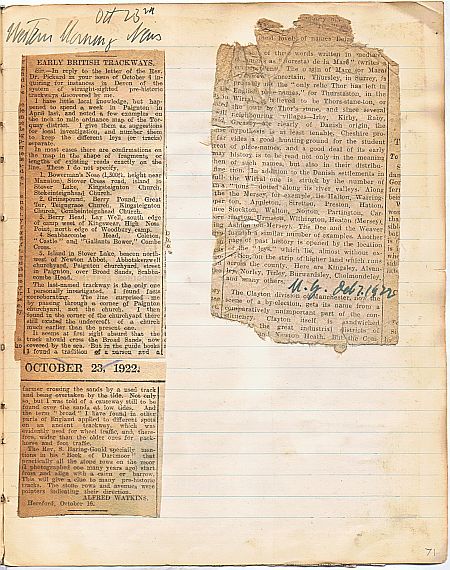 Oct 23rd
Western Morning News
EARLY BRITISH TRACKWAYS.
SIR.—In reply to the letter of the Rev.
Dr. Pickard in your issue of October 4 in-
quiring for instances in Devon of the
system of straight-sighted pre-historic
trackways discovered by me.
I have little local knowledge, but hap-
pened to spend a week in Paignton in
April last, and noted a few examples on
the inch to mile ordnance map of the Tor-
quay district. I give them as suggestive
for local investigation, and number them
to keep the different leys (or tracks)
separate.
In most cases there are confirmations on
the map in the shape of fragments or
lengths of existing roads exactly on the
ley. These I do not specify.
height near
Mansion, Stover Cross road, island in
Stover Lake, Kingsteignton Church,
Stokeinteignhead Church.
2. Grimspound, Berry Pound, Great
Tor, Teigngrace Church, Kingsteignton
Church, Combeinteignhead Church.
3. Berry Head, Lay Well, south edge
of barn west of Kingswear, High Nose
Point, north edge of Woodbury camp.
4. Scabbacombe Head, Coleton,
"Castle" and "Gallants Bower,"
Cross.
5. Island in Stover Lake, beacon north-
west of Newton Abbot, Abbotskerswell
churchyard, Paignton churchyard, where
in Paignton, over Broad Sands, Scabba-
combe Head.
The last-named trackway is the only one
I personally investigated. I found facts
corroborating. The line surprised me
by passing through a corner of Paignton
churchyard, not the church. I then
found in the corner of the churchyard there
had existed the undercroft of a church
much earlier than the present one.
It seems at first sight absurd that the
track should cross the Broad Sands, now
covered by the sea. But in the guide books
I found a tradition of a person and a
OCTOBER 23, 1922.
farmer crossing the sands by a used track
and being overtaken by the tide. Not only
so, but I was told of a causeway still to be
found over the sands at low tides. And
the term "broad" I have found in other
parts of England applied to different spots
on an ancient trackway, which was
evidently used for wheel traffic, and, there-
fore, wider than the older ones for pack-
horse and foot traffic.
The Rev. S. Baring-Gould specially men-
tions in his "Book of Dartmoor" that
practically all the stone rows on the moor
(I photographed one many years ago) start
from and align with a cairn or barrow.
This will give a clue to many pre-historic
tracks. The stone rows and avenues were
pointers indicating their direction.
ALFRED WATKINS.
Hereford, October 16.
lovely of names
of three words written in
as "Thursta' de la Mare" (writes a
The origin of Mare (or Mara)
uncertain. Thursley, in Surrey, is
to be the "only relic Thor has left in
English place-names," for Thurstaston, in the
Wirral, is believed to be Thors-stane-ton, or
the town by Thor's stone, and since several
will neighbouring villages—Irby, Kirby, Raby,
Greasby—are clearly of Danish origin, the
hypothesis is at least tenable. Cheshire pro-
vides a good hunting-ground for the student
of place-names, and a good deal of its early
history is to be read not only in the meaning
of such names, but also in their distribu-
tion. In addition to the Danish settlements in
the Wirral one is struck by the number of
"tons" dotted along its river valleys. Along
the Mersey, for example, lie Halton, Warring-
Appleton, Stretton, Preston, Hatton,
Stockton, Walton, Norton, Partington, Car-
rington, Urmston, Withington, Heaton (Mersey)
Ashton (on Mersey). The Dee and the Weaver
furnish a similar number of examples. Another
page of past history is opened by the location
of the "leys" which lie, almost without ex-
ception, on the strip of higher land which runs
across the county. Here are Kingsley, Alvan-
ley, Norley, Tirley, Burwardsley, Cholmondeley,
and many others.
M. G. Oct 7. 1922
The Clayton division of Manchester, now the
scene of a by-election, gets its name from a
comparatively unimportant part of the con-
stituency. Clayton itself is sandwiched
the great industrial districts of
Newton Heath. But the
71